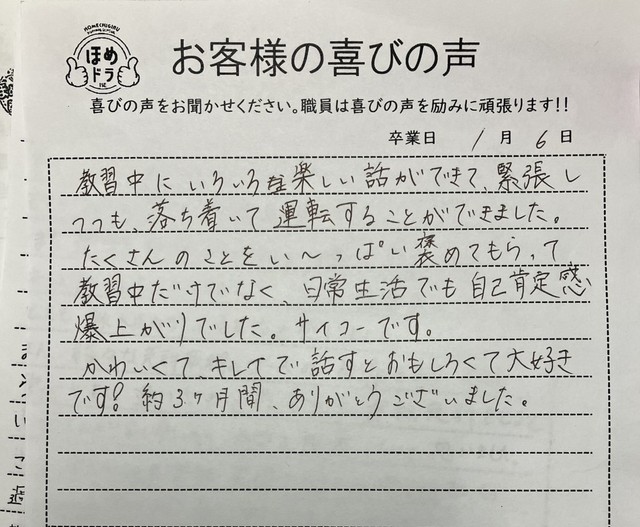 ほめ
ドラ
お客様の喜びの声
喜びの声をお聞かせください。職員は喜びの声を励みに頑張ります!!
卒業日 1月 6日
教習中にいろいろな楽しい話ができて、緊張し
つつも、落ち着いて運転することができました。
たくさんのことをい〜っぱい褒めてもらって
教習中だけでなく、日常生活でも自己肯定感
爆上がりでした。サイコーです。
かわいくて、キレイで話すとおもしろくて大好き
です! 約3ヶ月間、ありがとうございました。